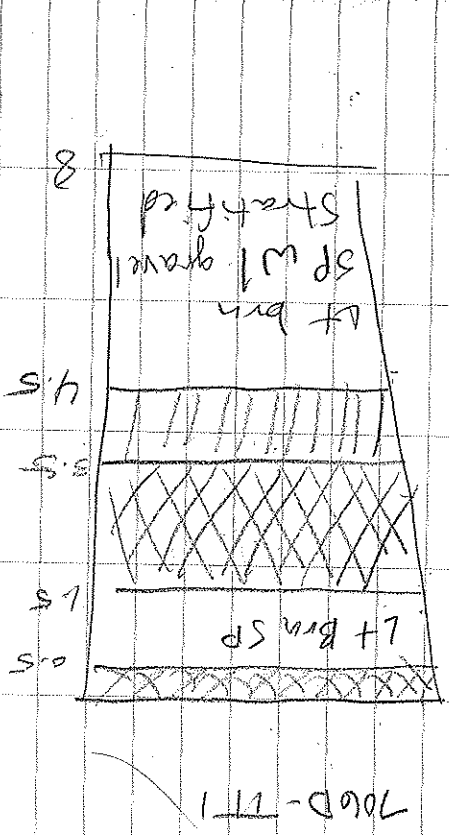 706D - UT1
0.5
Lt Brn SP
1.5
3.5
4.5
Lt brn
SP w/ gravel
Stratified
8